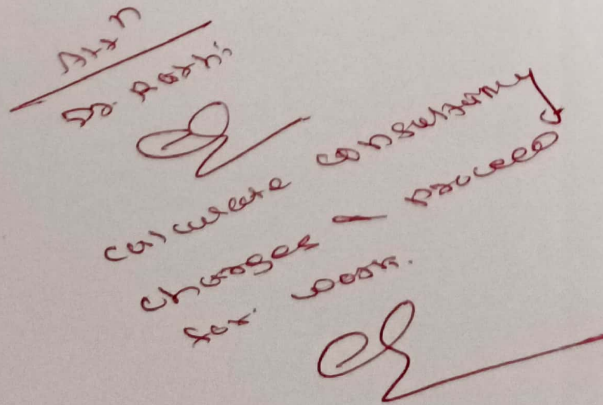 Attn
Dr. Rathi
calculate consultancy
charges & proceed
for work.